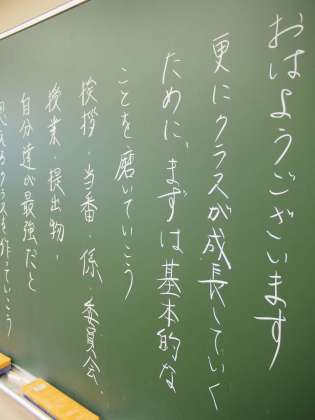 おはようございます
更にクラスが成長していく
ために、まずは基本的な
ことを磨いていこう
挨拶・当番・係・委員会・
授業・提出物・
自分達が最強だと
思えるクラスを作っていこう